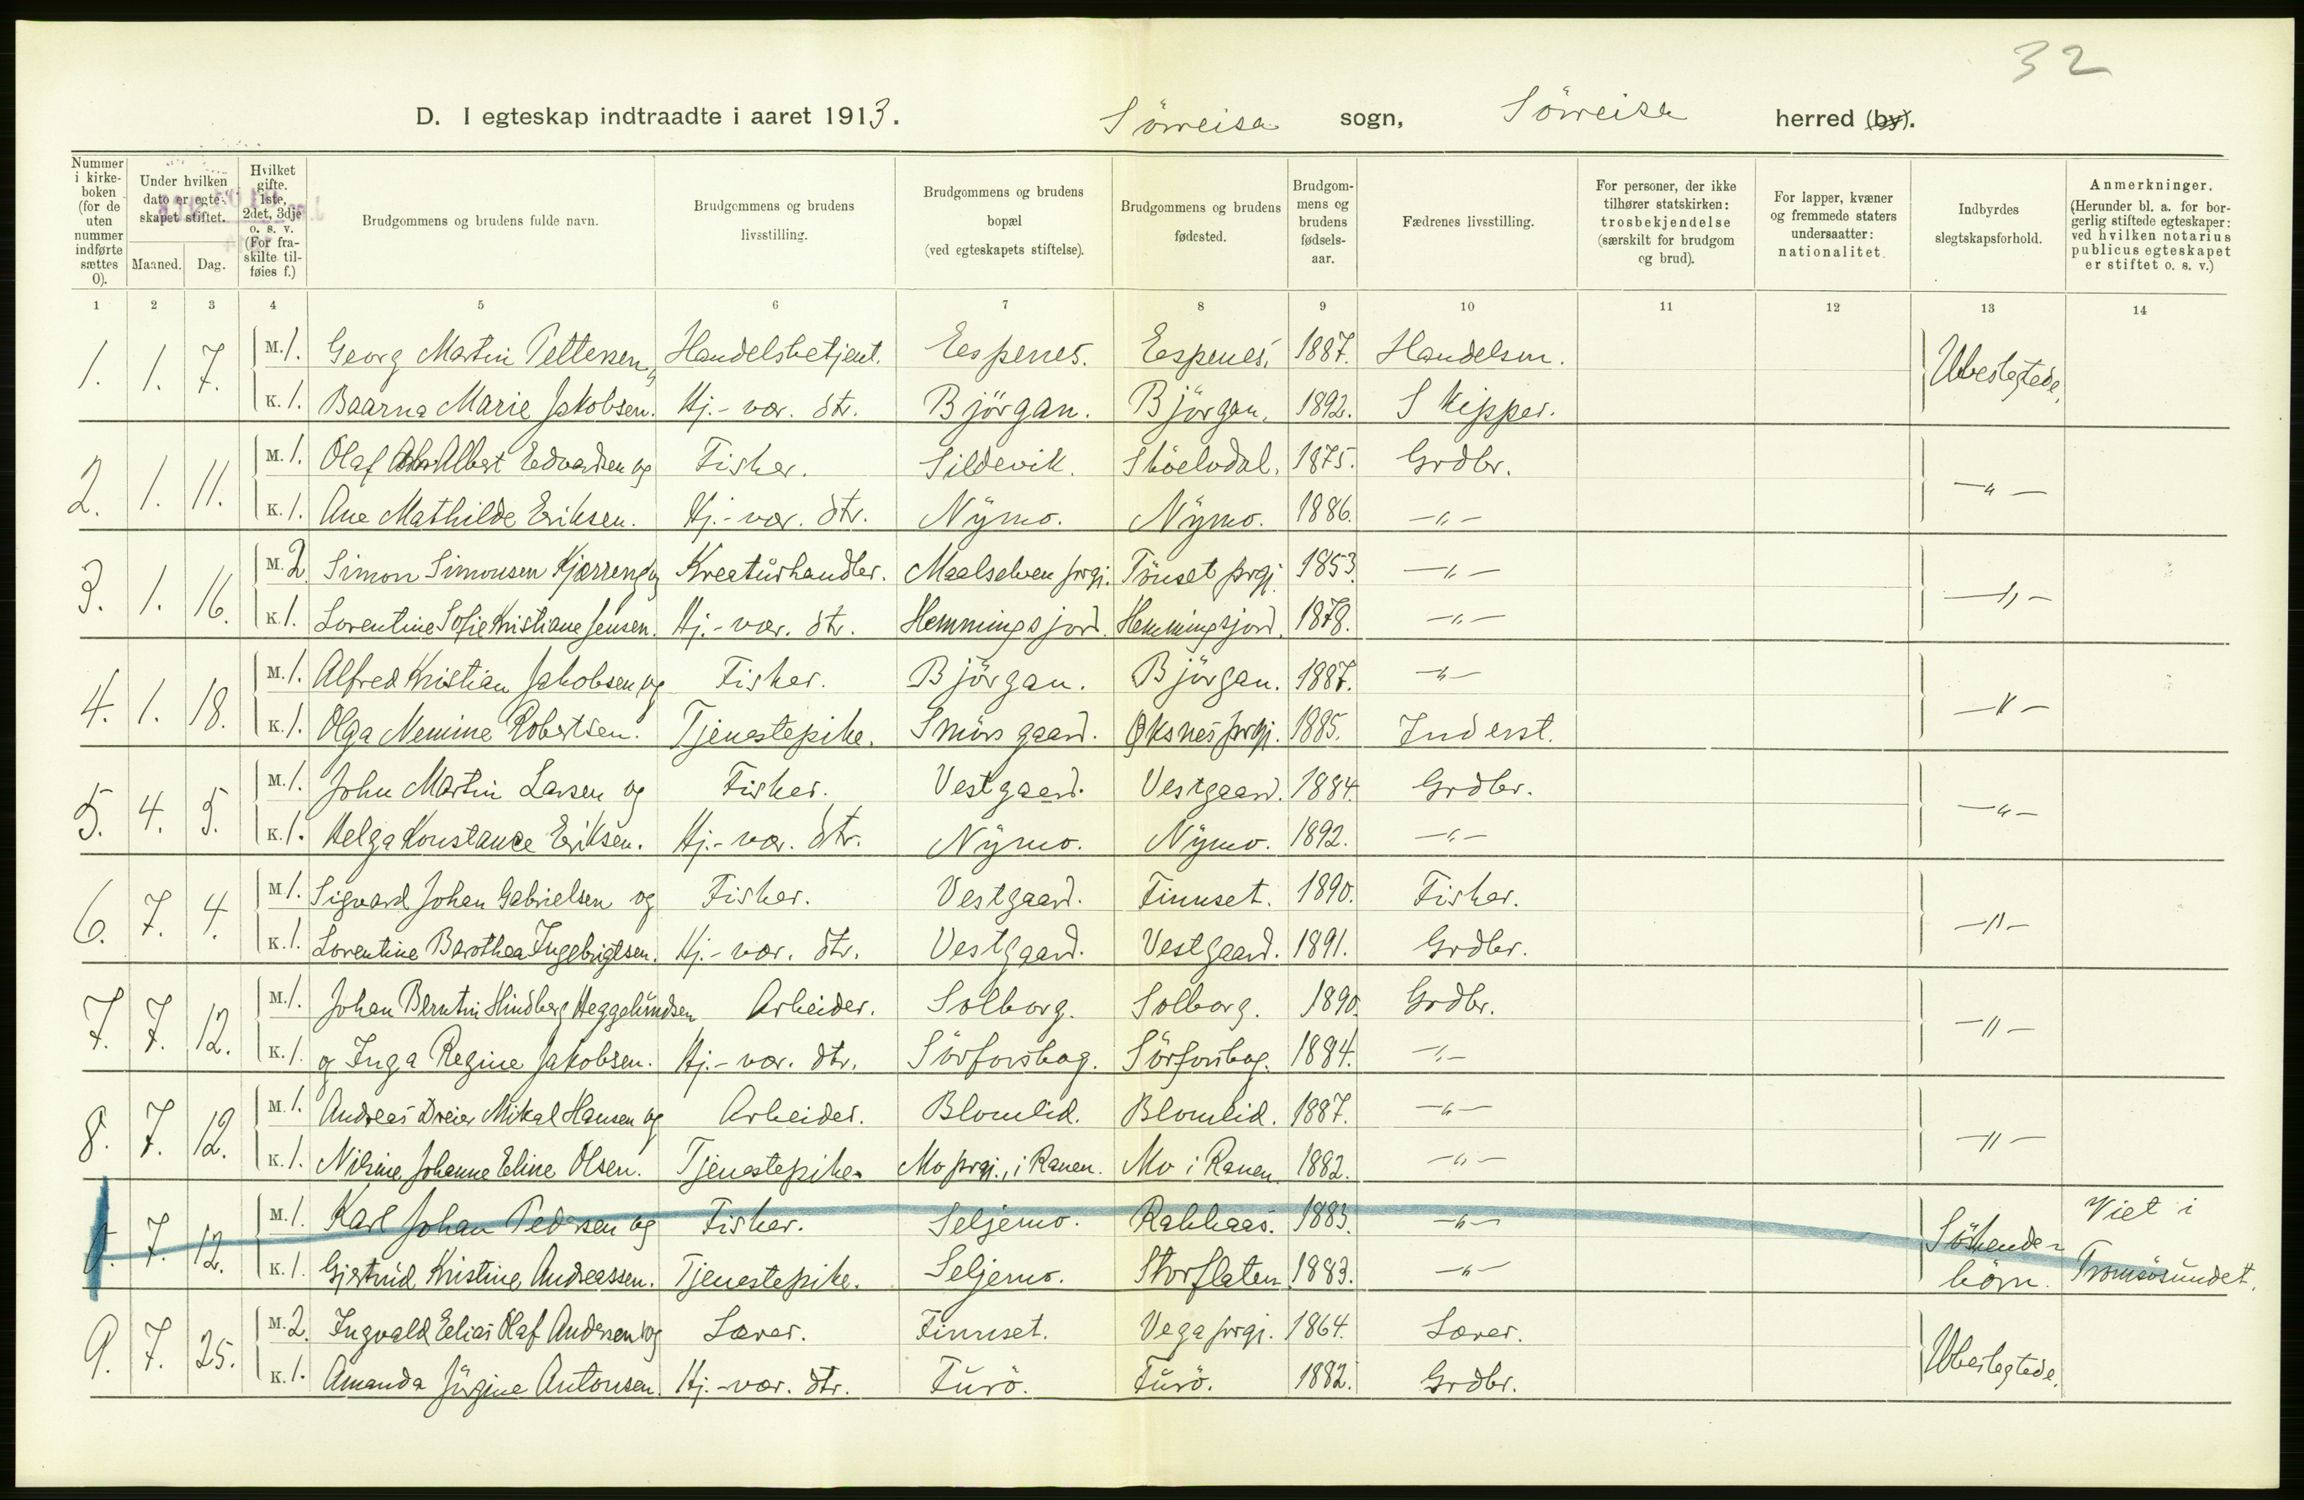 32
D. I egteskap indtraadte i aaret 1913. Sörreisa sogn, Sörreisa herred (by).
Nummer i kirke-boken (for de uten nummer indførte sættes 0). Under hvilken dato er egte-skapet stiftet. Maaned. Dag. Hvilket gifte. 1ste, 2det, 3dje o. s. v. (For fra-skilte til-føies f.) Brudgommens og brudens fulde navn. Brudgommens og brudens livsstilling. Brudgommens og brudens bopæl (ved egteskapets stiftelse). Brudgommens og brudens fødested. Brudgom-mens og brudens fødsels-aar. Fædrenes livsstilling. For personer, der ikke tilhører statskirken: trosbekjendelse (særskilt for brudgom og brud). For lapper, kvæner og fremmede staters undersaatter: nationalitet. Indbyrdes slegtskapsforhold. Anmerkninger. (Herunder bl. a. for bor-gerlig stiftede egteskaper: ved hvilken notarius publicus egteskapet er stiftet o. s. v.)
1 2 3 4 5 6 7 8 9 10 11 12 13 14
1. 1. 7. M. 1. Georg Martin Pettersen, Handelsbetjent. Espenes. Espenes. 1887. Handelsm. Ubeslegtede.
K. 1. Baarna Marie Jakobsen. Hj.-vær. dtr. Björgan. Björgan. 1892. Skipper.
2. 1. 11. M. 1. Olaf Albert Edvardsen og Fisker. Sildevik. 1875. Grdbr. —"—
K. 1. Ane Mathilde Eriksen. Hj.-vær. dtr. Nymo. Nymo. 1886. —"—
3. 1. 16. M. 2 Simon Simonsen Kjærreng og Kreaturhandler. Maalselven prgj. Tönset prgj. 1853. —"— —"—
K. 1. Lorentine Sofie Kristiane Jensen. Hj.-vær. dtr. Hemmingsjord. Hemmingsjord. 1878. —"—
4. 1. 18. M. 1. Alfred Kristian Jakobsen og Fisker. Björgan. Björgan. 1887. —"— —"—
K. 1. Olga Nemine Robertsen. Tjenestepike. Smörsgaard. Øksnes prgj. 1885. Inderst.
5. 4. 5. M. 1. John Martin Larsen og Fisker. Vestgaard. Vestgaard. 1884. Grdbr. —"—
K. 1. Helga Konstance Eriksen. Hj.-vær. dtr. Nymo. Nymo. 1892. —"—
6. 7. 4. M. 1. Sigvard Johan Gabrielsen og Fisker. Vestgaard. Finnset. 1890. Fisker. —"—
K. 1. Lorentine Barothea Ingebrigtsen. Hj.-vær. dtr. Vestgaard. Vestgaard. 1891. Grdbr.
7. 7. 12. M. 1. Johan Berntin Hindberg Heggelundsen Arbeider. Solborg. Solborg. 1890. Grdbr. —"—
K. 1. og Inga Regine Jakobsen. Hj.-vær. dtr. Sörforsbag. Sörforsbag. 1884. —"—
8. 7. 12. M. 1. Andreas Dreier Mikal Hansen og Arbeider. Blomlid. Blomlid. 1887. —"— —"—
K. 1. Nilsine Johanne Eline Olsen. Tjenestepike. Mo prgj., i Ranen. Mo i Ranen. 1882. —"—
0. 7. 12. M. 1. Karl Johan Pedersen og Fisker. Seljemo. Rabbaas. 1883. —"— Sökende- Viet i
K. 1. Gjertrud Kristine Andreassen. Tjenestepike. Seljemo. Storflaten. 1883. —"— börn. Tromsösundet.
9. 7. 25. M. 2. Ingvald Elias Olaf Andersen og Lærer. Finnset. Vega prgj. 1864. Lærer. Ubeslegtede.
K. 1. Amanda Jörgine Antonsen. Hj.-vær. dtr. Furö. Furö. 1882. Grdbr.